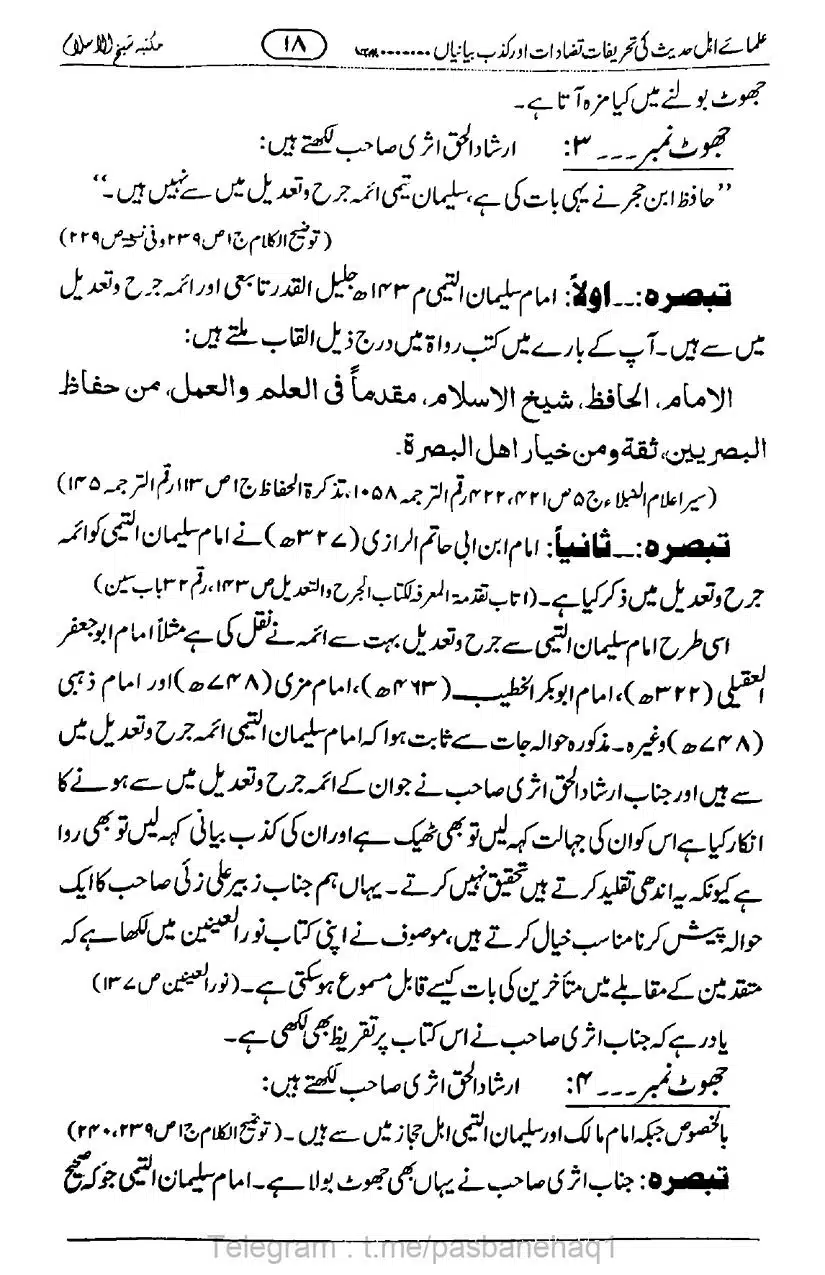 علمائے اہل حدیث کی تحریفات تضادات اور کذب بیانیاں ........ ۱۸ مکتبہ شیخ الاسلام
جھوٹ بولنے میں کیا مزہ آتا ہے۔
جھوٹ نمبر ۔۔۔ ۳: ارشاد الحق اثری صاحب لکھتے ہیں:
’’حافظ ابن حجر نے یہی بات کی ہے، سلیمان تیمی ائمہ جرح و تعدیل میں سے نہیں ہیں۔‘‘
(توضیح الکلام ج۱ص۲۳۹ وفی نسخہ ص۲۲۹)
تبصرہ:۔۔اولاً: امام سلیمان التیمی م ۱۴۳ھ جلیل القدر تابعی اور ائمہ جرح و تعدیل
میں سے ہیں۔ آپ کے بارے میں کتب رواۃ میں درج ذیل القاب ملتے ہیں:
الامام، الحافظ، شیخ الاسلام، مقدماً فی العلم والعمل، من حفاظ
البصریین، ثقة ومن خیار اهل البصرة۔
(سیر اعلام النبلاء ج۵ص۴۲۱،۴۲۲ رقم الترجمہ ۱۰۵۸، تذکرۃ الحفاظ ج۱ص۱۱۳ رقم الترجمہ ۱۴۵)
تبصرہ:۔۔ثانیاً: امام ابن ابی حاتم الرازی (۳۲۷ھ) نے امام سلیمان التیمی کو ائمہ
جرح و تعدیل میں ذکر کیا ہے۔ (کتاب تقدمۃ المعرفۃ لکتاب الجرح والتعدیل ص۱۴۳، رقم ۳۲ باب سین)
اسی طرح امام سلیمان التیمی سے جرح و تعدیل بہت سے ائمہ نے نقل کی ہے مثلاً امام ابو جعفر
العقیلی (۳۲۲ھ)، امام ابوبکر الخطیب (۴۶۳ھ)، امام مزی (۷۴۸ھ) اور امام ذہبی
(۷۴۸ھ) وغیرہ۔ مذکورہ حوالہ جات سے ثابت ہوا کہ امام سلیمان التیمی ائمہ جرح و تعدیل میں
سے ہیں اور جناب ارشاد الحق اثری صاحب نے جو ان کے ائمہ جرح و تعدیل میں سے ہونے کا
انکار کیا ہے اس کو ان کی جہالت کہہ لیں تو بھی ٹھیک ہے اور ان کی کذب بیانی کہہ لیں تو بھی روا
ہے کیونکہ یہ اندھی تقلید کرتے ہیں تحقیق نہیں کرتے۔ یہاں ہم جناب زبیر علی زئی صاحب کا ایک
حوالہ پیش کرنا مناسب خیال کرتے ہیں، موصوف نے اپنی کتاب نور العینین میں لکھا ہے کہ
متقدمین کے مقابلے میں متأخرین کی بات کیسے قابل مسموع ہوسکتی ہے۔ (نور العینین ص۱۳۷)
یاد رہے کہ جناب اثری صاحب نے اس کتاب پر تقریظ بھی لکھی ہے۔
جھوٹ نمبر ۔۔۔ ۴: ارشاد الحق اثری صاحب لکھتے ہیں:
بالخصوص جبکہ امام مالک اور سلیمان التیمی اہل حجاز میں سے ہیں۔ (توضیح الکلام ج۱ص۲۳۹،۲۴۰)
تبصرہ: جناب اثری صاحب نے یہاں بھی جھوٹ بولا ہے۔ امام سلیمان التیمی جو کہ صحیح
Telegram : t.me/pasbanehaq1